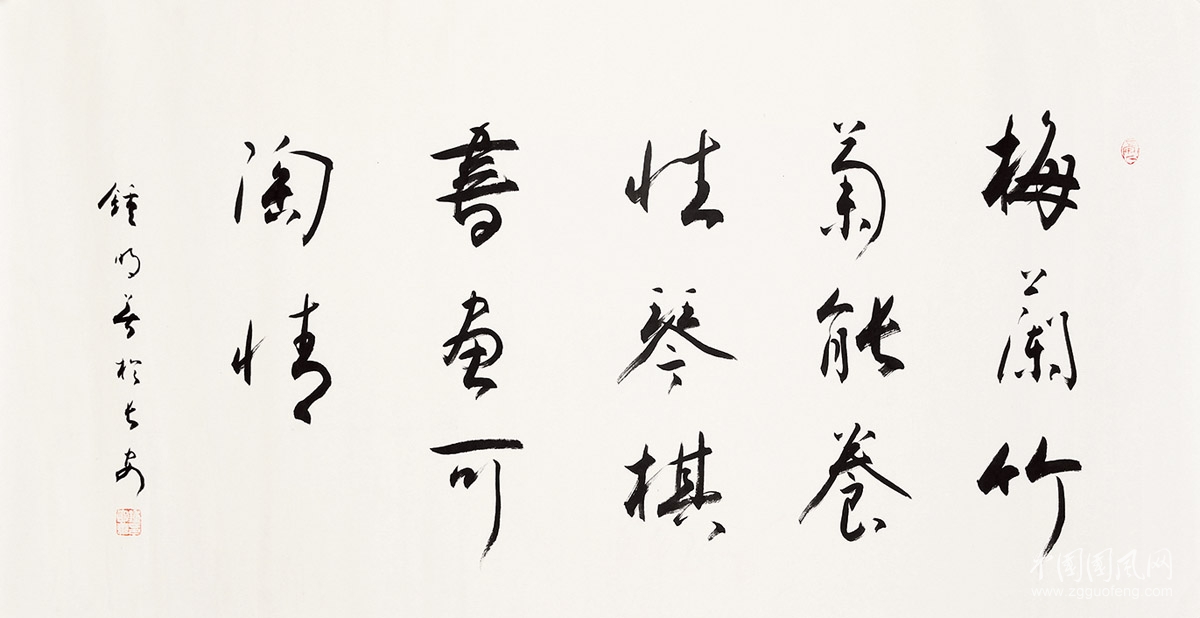 梅蘭竹
菊能養
性琴棋
書畫可
陶情
鍾明善於長安
中国国风网
www.zgguofeng.com